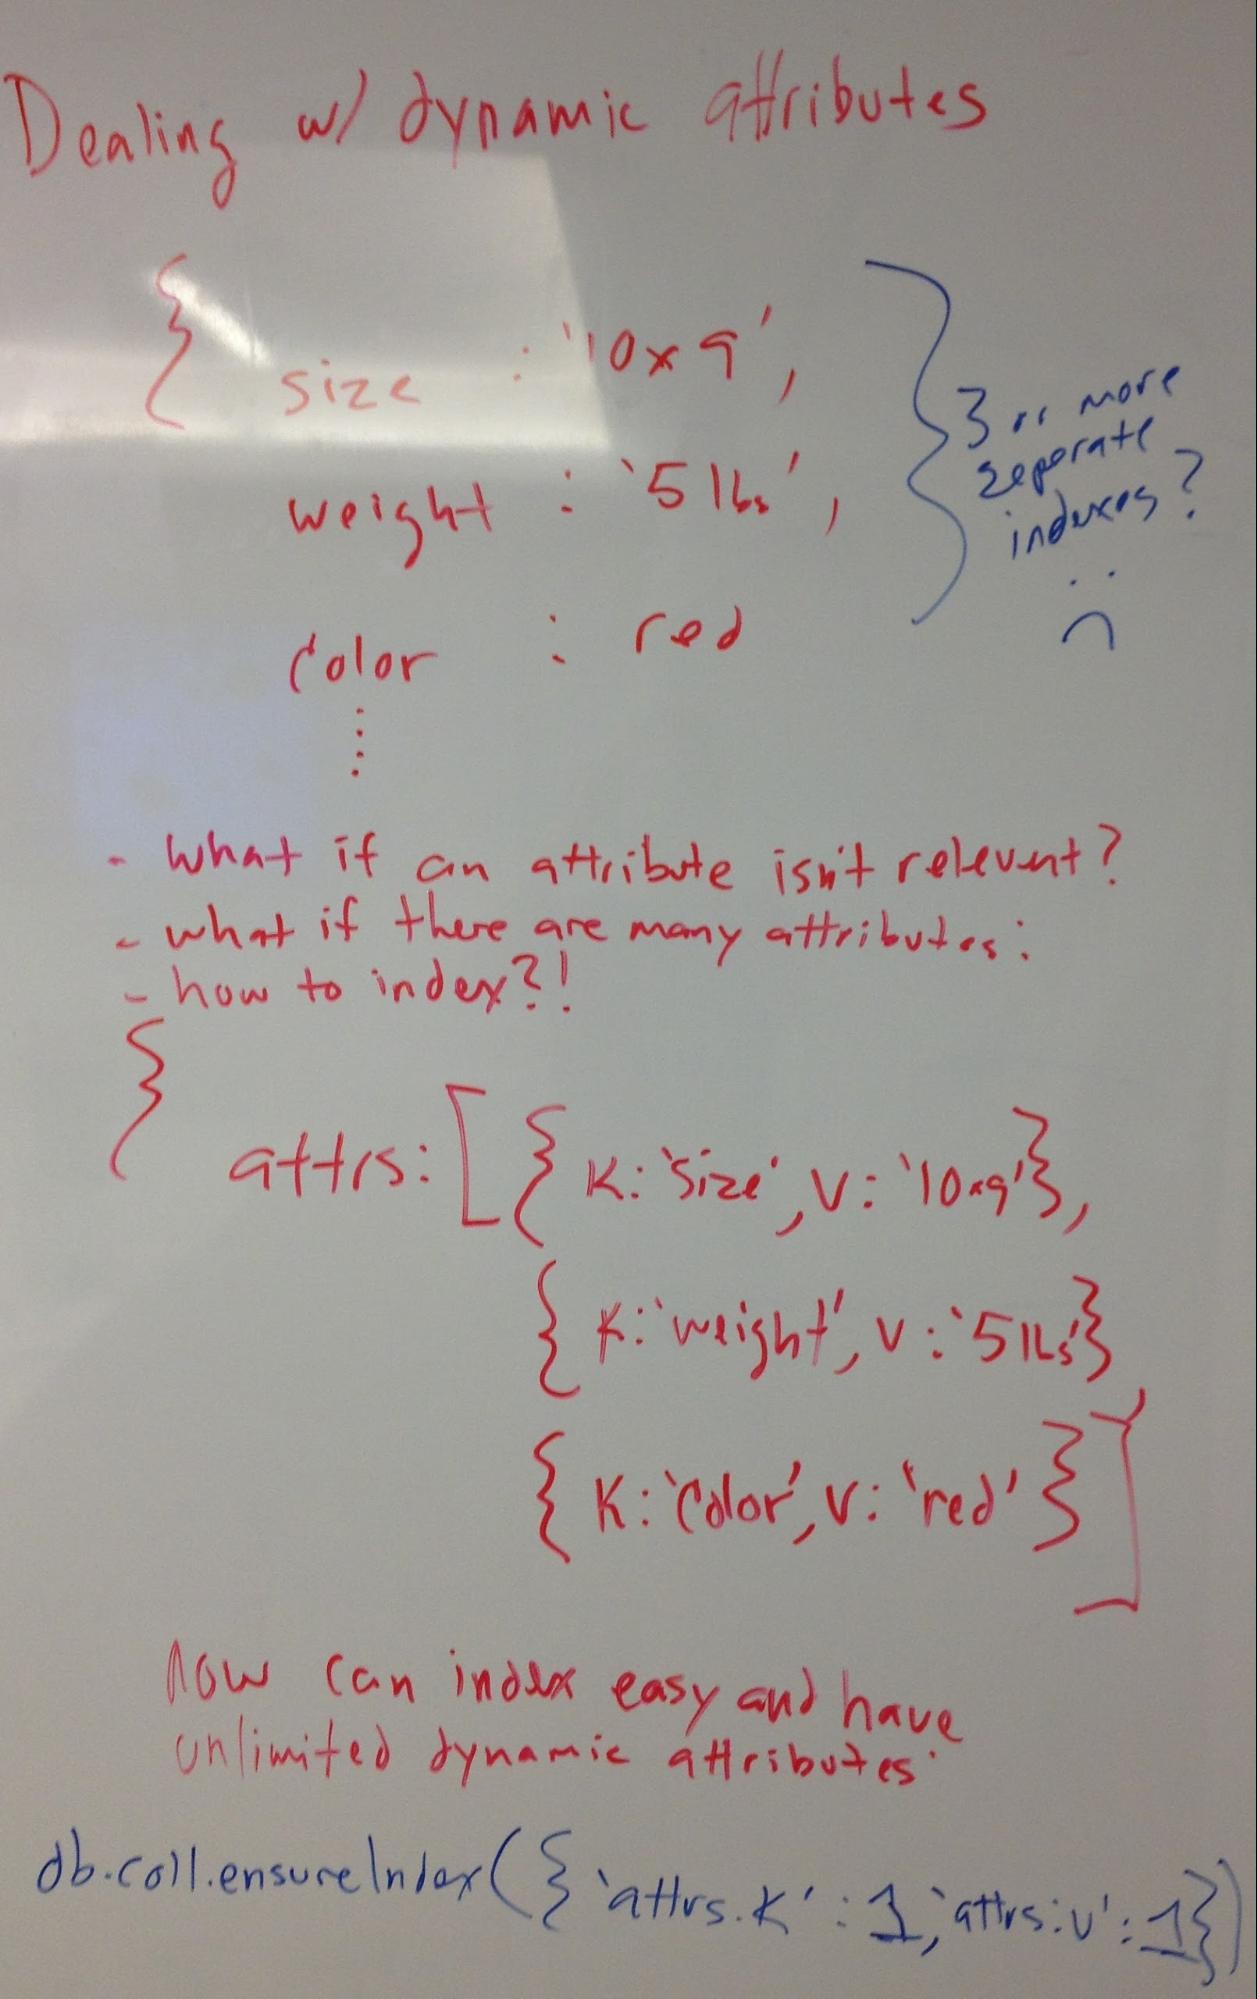 Dealing w/ dynamic attributes
{
size : '10x9',
weight : '5 lbs',
color : red
⋮
} 3 or more
seperate
indexes?
:(
- what if an attribute isn't relevent?
- what if there are many attributes:
- how to index?!
{
attrs: [ { K: 'size', V: '10x9' },
{ K: 'weight', V: '5 lbs' }
{ K: 'color', V: 'red' } ]
now can index easy and have
unlimited dynamic attributes.
db.coll.ensureIndex({ 'attrs.K' : 1, 'attrs.v' : 1})